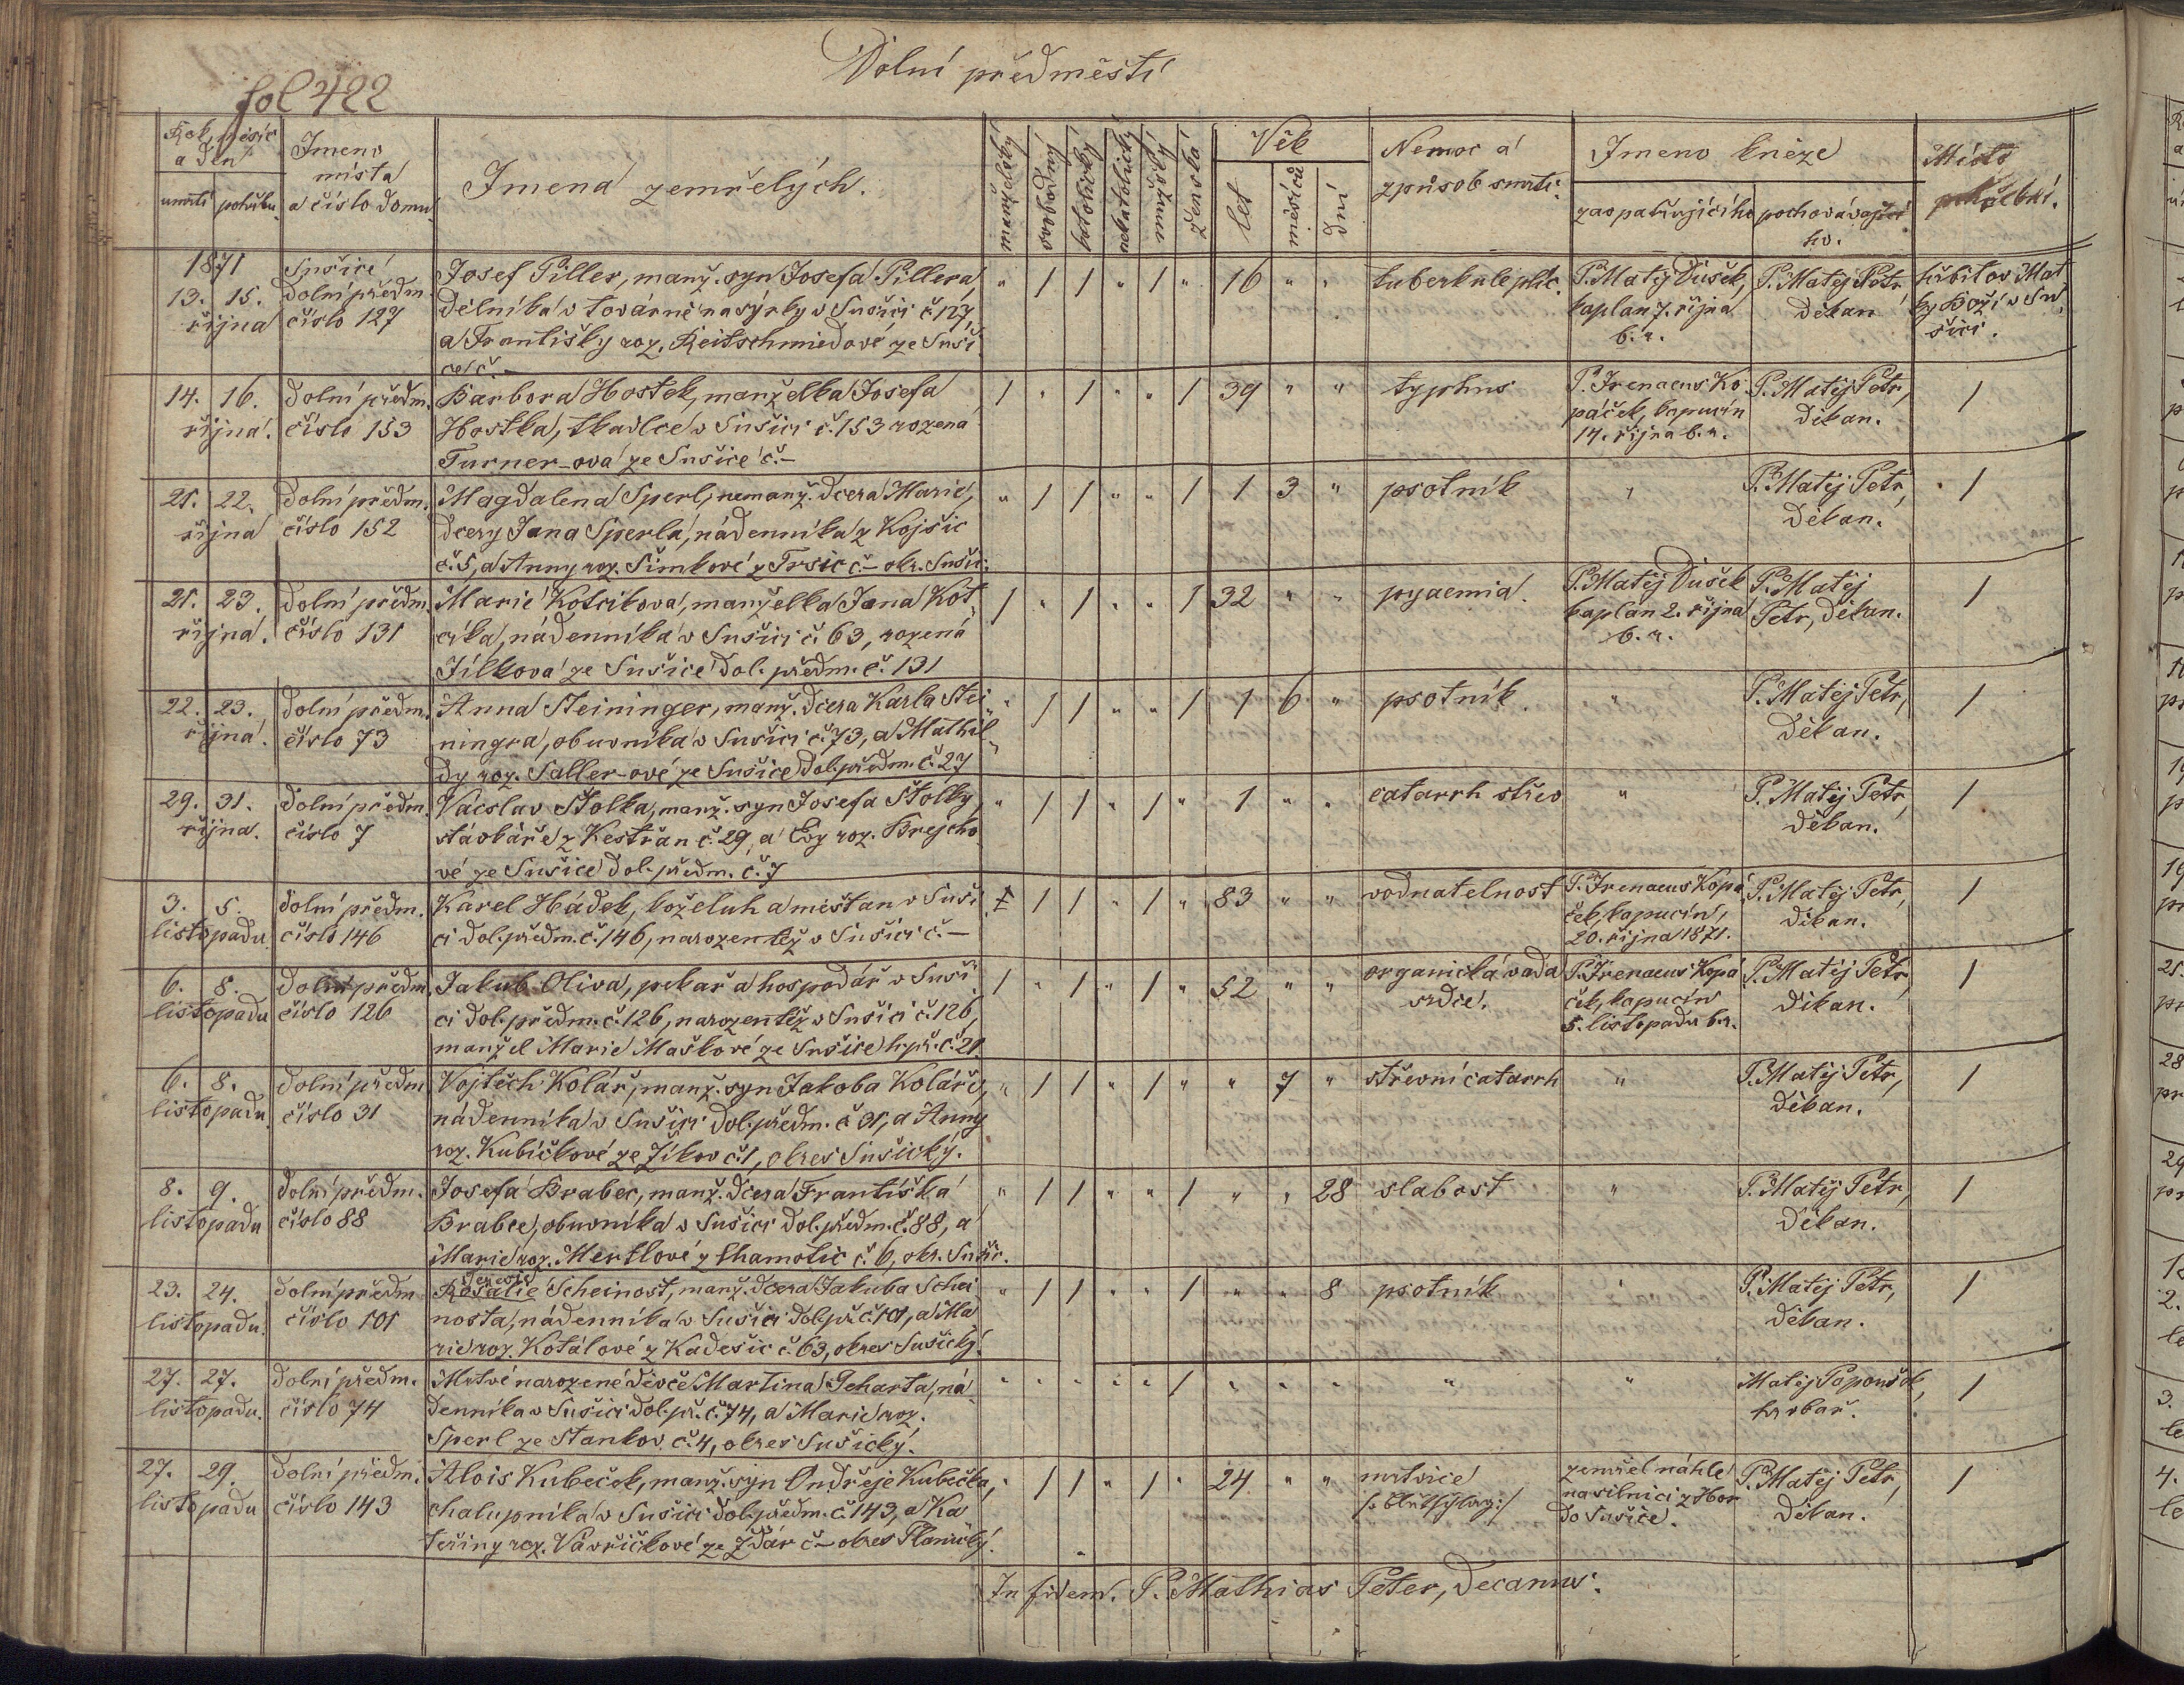 Dolní předměstí
fol 422
Rok, měsíc a den
úmrtí pohřbu
Jmeno místa a číslo domu
Jmena zemřelých.
manželský svobodný katolický nekatolický mužský ženská
Věk
let měsíců dní
Nemoc a způsob smrti.
Jmeno kněze
zaopatřujícího pochovávajícího.
Místo pohřební.
1871
13. 15. října
Sušice, dolní předm. číslo 127
Josef Piller, manž. syn Josefa Pillera
dělníka v továrně na sýrky v Sušici č. 127,
a Františky roz. Reitschmiedové ze Suši
ce č. –
" / / " / " 16 " "
tuberkule plic.
P. Matěj Dušek, kaplan 7. října b. r.
P. Matěj Petr děkan
hřbitov Matky Boží v Sušici.
14. 16. října.
dolní předm. číslo 153
Barbora Hostek, manželka Josefa
Hostka, tkadlce v Sušici č. 153 rozená
Turner-ova ze Sušice č. –
/ " / " " / 39 " "
typhus
P. Irenaeus Kopáček, kapucín 14. října b. r.
P. Matěj Petr, děkan.
/
21. 22. října
dolní předm. číslo 152
Magdalena Sperl, nemanž. dcera Marie,
dcery Jana Sperla, nádenníka z Kojšic
č. 5, a Anny roz. Šimkové z Trsic č. – okr. Sušic.
" / / " " / 1 3 "
psotník
"
P. Matěj Petr, děkan.
/
21. 23. října.
dolní předm. číslo 131
Marie Kotrikova, manželka Jana Kot
říka, nádenníka v Sušici č. 63, rozená
Jílkova ze Sušice dol. předm. č. 131
/ " / " " / 32 " "
pyaemia.
P. Matěj Dušek kaplan 2. října b. r.
P. Matěj Petr, děkan.
/
22. 23. října.
dolní předm. číslo 73
Anna Steininger, manž. dcera Karla Stei
ningra, obuvníka v Sušici č. 73, a Mathil
dy roz. Saller-ové ze Sušice dol. předm. č. 27
" / / " " / 1 6 "
psotník.
"
P. Matěj Petr, děkan.
/
29. 31. října.
dolní předm. číslo 7
Václav Štolka, manž. syn Josefa Štolky,
stávkáře z Kestřan č. 29, a Evy roz. Brejcho
vé ze Sušice dol. předm. č. 7
" / / " / " 1 " "
catarrh střev
"
P. Matěj Petr, děkan.
/
3. 5. listopadu
dolní předm. číslo 146
Karel Hádek, koželuh a měšťan v Suši
ci dol. předm. č. 146, narozen též v Sušici č. –
/ / " / " 83 " "
vodnatelnost
P. Irenaeus Kopáček, kapucín, 20. října 1871.
P. Matěj Petr, děkan.
/
6. 8. listopadu
dolní předm. číslo 126
Jakub Oliva, pekař a hospodář v Suši
ci dol. předm. č. 126, narozen též v Sušici č. 126,
manžel Marie Maškové ze Sušice h. př. č. 21
/ " / " / " 52 " "
organická vada srdce.
P. Irenaeus Kopáček, kapucín 5. listopadu b. r.
P. Matěj Petr, děkan.
/
6. 8. listopadu.
dolní předm. číslo 31
Vojtěch Kolář, manž. syn Jakoba Koláře,
nádenníka v Sušici dol. předm. č. 31, a Anny
roz. Kubíčkové ze Žíkov č. 1, okres Sušický.
" / / " / " " 7 "
střevní catarrh
"
P. Matěj Petr, děkan.
/
8. 9. listopadu
dolní předm. číslo 88
Josefa Brabec, manž. dcera Františka
Brabce, obuvníka v Sušici dol. předm. č. 88, a
Marie roz. Mertlové z Chamotic č. 6, okr. Sušic.
" / / " " / " " 28
slabost
"
P. Matěj Petr, děkan.
/
23. 24. listopadu.
dolní předm. číslo 101
Terezie
Rosalie Scheinost, manž. dcera Jakuba Schei
nosta, nádenníka v Sušici dol. př. č. 101, a Ma
rie roz. Kotálové z Kadešic č. 63, okres Sušický.
" / / " " / " " 8
psotník
"
P. Matěj Petr, děkan.
/
27. 27. listopadu.
dolní předm. číslo 74
Mrtvě narozené děvče Martina Scharta, ná
denníka v Sušici dol. př. č. 74, a Marie roz.
Sperl ze Stankov č. 4, okres Sušický.
" " " " " / " " "
"
"
Matěj Papoušek, hrobař.
/
27. 29. listopadu
dolní předm. číslo 143
Alois Kubeček, manž. syn Ondřeje Kubečka,
chalupníka v Sušici dol. předm. č. 143, a Ka
teřiny roz. Vavřičkové ze Ždár č. – okres Plánický.
" / / " / " 24 " "
mrtvice /: Blutschlag :/
zemřel náhle na silnici z Hor do Sušice.
P. Matěj Petr, děkan.
/
In fidem. P. Mathias Peter, decanus.